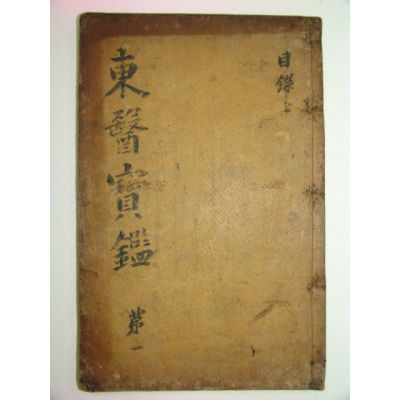 東醫寶鑑 第一
目錄上